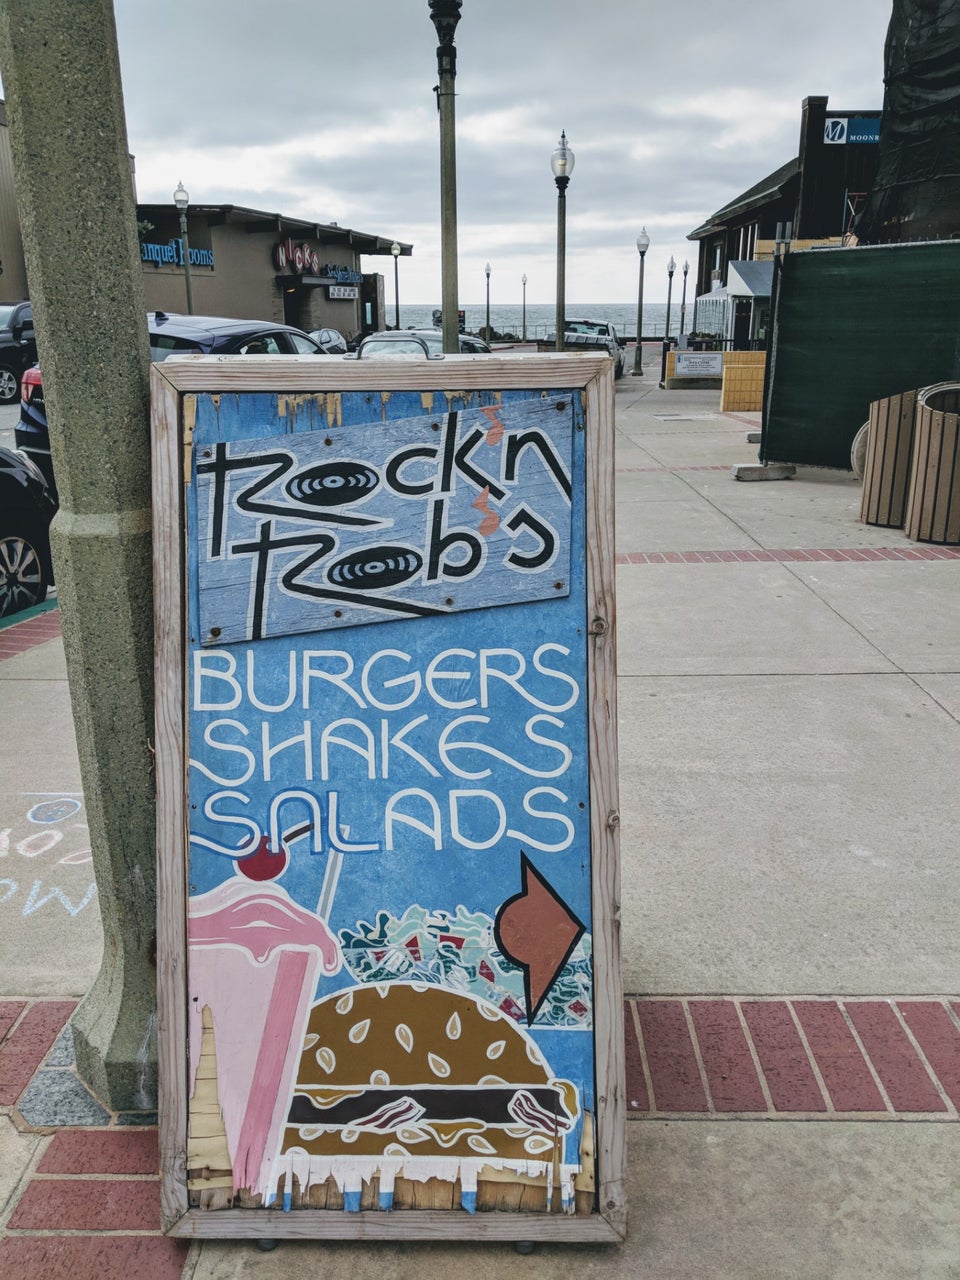 Rock'n
Rob's
BURGERS
SHAKES
SALADS
Banquet Rooms
NICK'S
MOONR
WELCOME